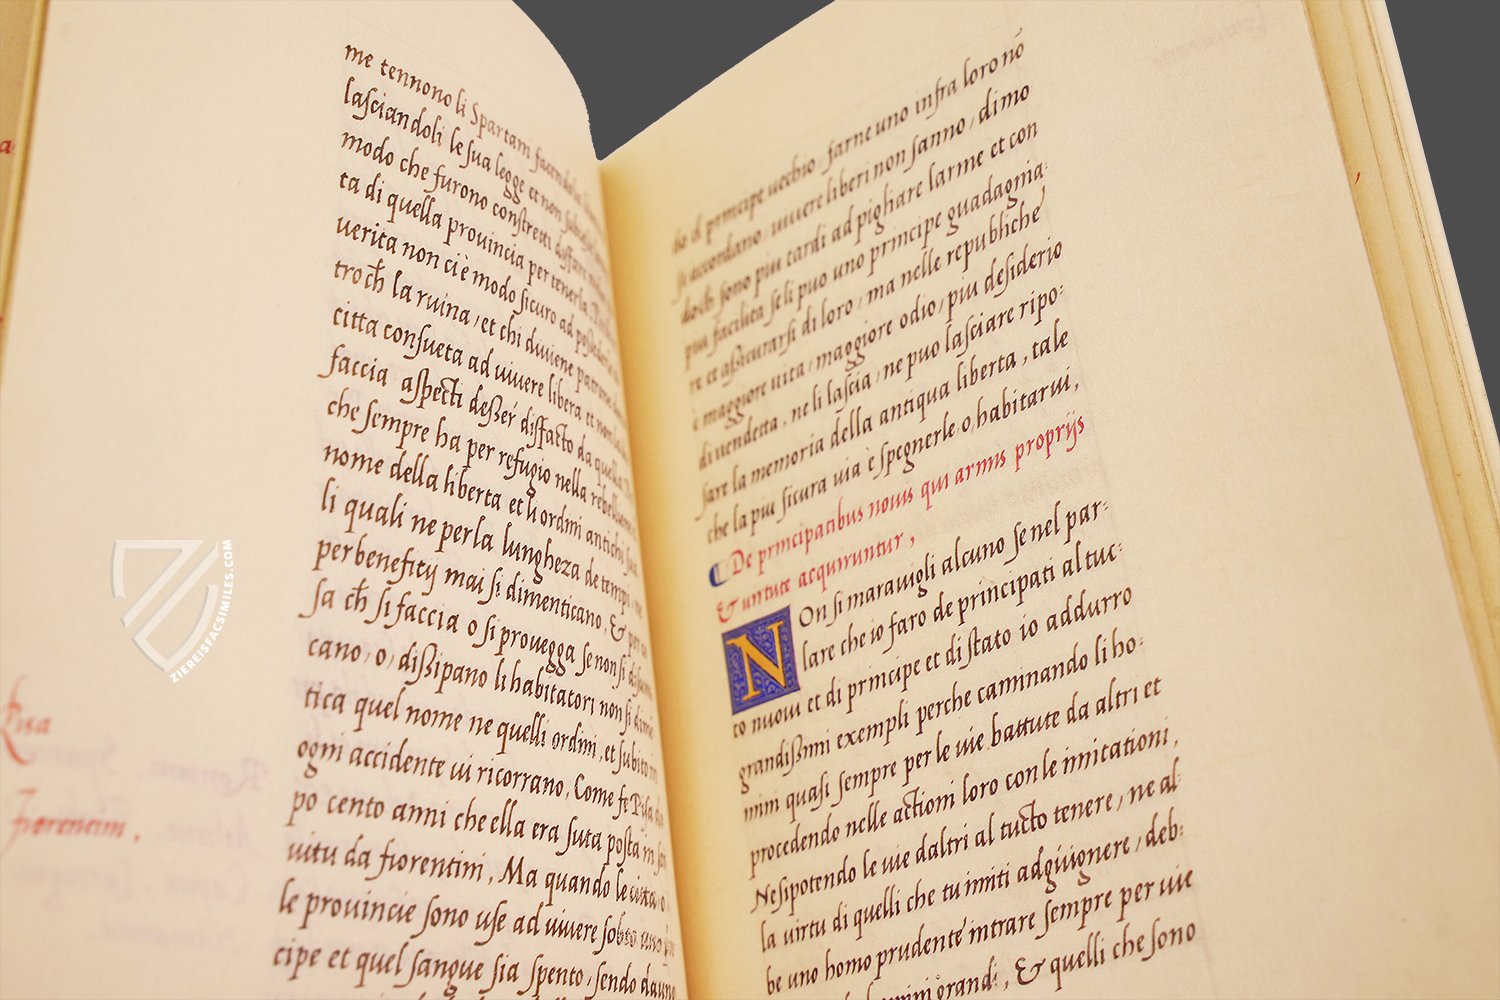 me tennono li Spartani facendola
lasciandoli le sua legge et non
modo che furono constretti disfare
ta di quella prouincia per tenerla,
uerita non ci è modo sicuro ad
tro ch̄ la ruina, et chi diuiene patrone
citta consueta ad uiuere libera et non la
faccia aspecti desser disfacto da quella
che sempre ha per refugio nella
nome della liberta et li ordini antichi sua
li quali ne per la lungheza de tempi, ne
per beneficij mai si dimenticano, & per
sa ch̄ si faccia o si prouegga se non si
cano, o, dißipano li habitatori non si
tica quel nome ne quelli ordini, et subito in
ogni accidente ui ricorrano, Come fe Pisa
po cento anni che ella era suta posta in
uitu da fiorentini, Ma quando le citta, o
le prouincie sono use ad uiuere sotto uno
cipe et quel sangue sia spento, sendo da uno
Pisa
Fiorentini.
do el principe uechio, farne uno infra loro nō
si accordano, uiuere liberi non sanno, dimo
doch̄ sono piu tardi ad pigliare larme et con
piu facilita se li puo uno principe guadagnia-
re et aßicurarsi di loro, ma nelle republiche
è maggiore uita, maggiore odio, piu desiderio
di uendetta, ne li lascia, ne puo lasciare ripo-
sare la memoria della antiqua liberta, tale
che la piu sicura uia è spegnerle o, habitarui,
De principatibus nouis qui armis proprijs
& uirtute acquiruntur,
NOn si marauigli alcuno se nel par-
lare che io faro de principati al tuc-
to nuoui et di principe et di stato io addurro
grandißimi exempli perche caminando li ho-
mini quasi sempre per le uie battute da altri et
procedendo nelle actioni loro con le imitationi,
Ne si potendo le uie daltri al tucto tenere, ne al
la uirtu di quelli che tu imiti adgiugnere, deb-
be uno homo prudente intrare sempre per uie
grandi, & quelli che sono
ZIEREISFACSIMILES.COM